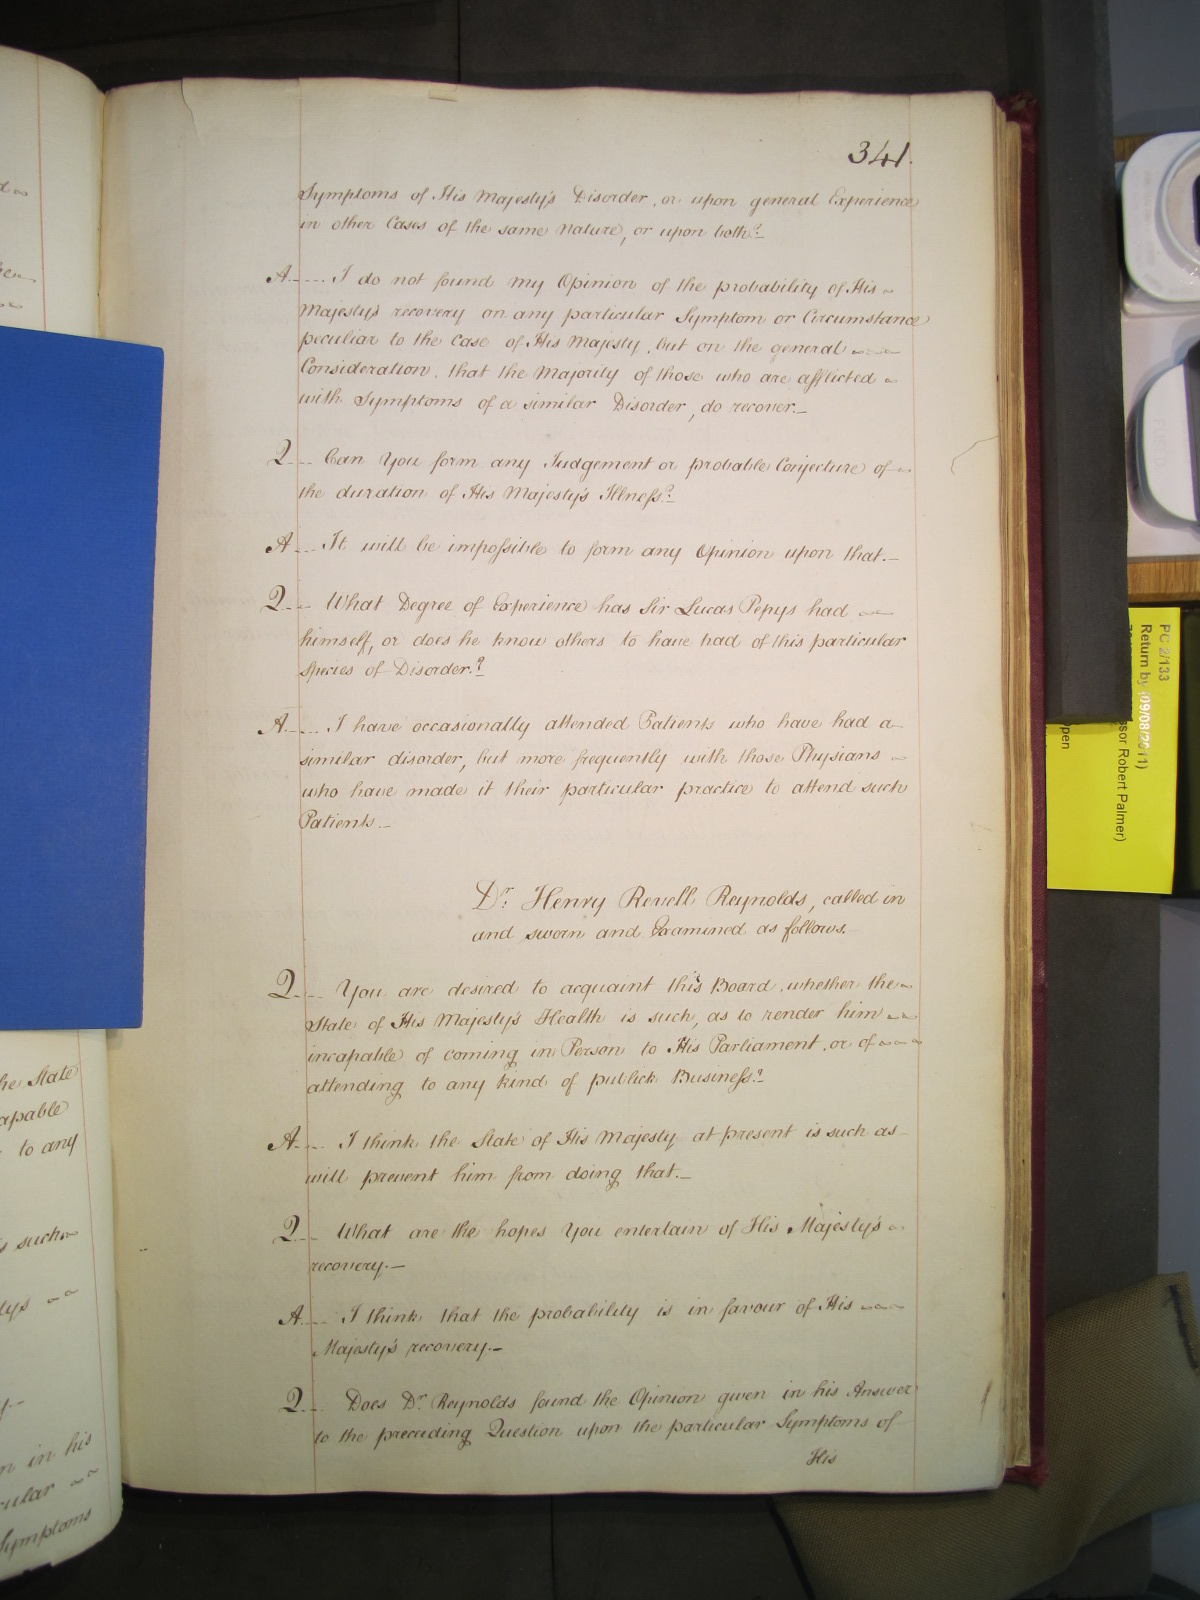 341.
Symptoms of His Majesty's Disorder, or upon general Experience
in other Cases of the same Nature, or upon both?
A I do not found my Opinion of the probability of His
Majesty's recovery on any particular Symptom or Circumstance
peculiar to the Case of His Majesty, but on the general
Consideration, that the Majority of those who are afflicted
with Symptoms of a similar Disorder, do recover.
Q Can You form any Judgement or probable Conjecture of
the duration of His Majesty's Illness?
A It will be impossible to form any Opinion upon that.
Q What Degree of Experience has Sir Lucas Pepys had
himself, or does he know others to have had of this particular
Species of Disorder?
A I have occasionally attended Patients who have had a
similar disorder, but more frequently with those Physians
who have made it their particular practice to attend such
Patients.
Dr. Henry Revell Reynolds, called in
and sworn and Examined as follows.
Q You are desired to acquaint this Board, whether the
State of His Majesty's Health is such, as to render him
incapable of coming in Person to His Parliament, or of
attending to any kind of publick Business?
A I think the State of His Majesty at present is such as
will prevent him from doing that.
Q What are the hopes You entertain of His Majesty's
recovery.
A I think that the probability is in favour of His
Majesty's recovery.
Q Does Dr. Reynolds found the Opinion given in his Answer
to the preceeding Question upon the particular Symptoms of
His
he State
apable
to any
s such
n in his
cular
Symptoms
PC 2/133
Return by (09/08/2011)
ssor Robert Palmer)
pen